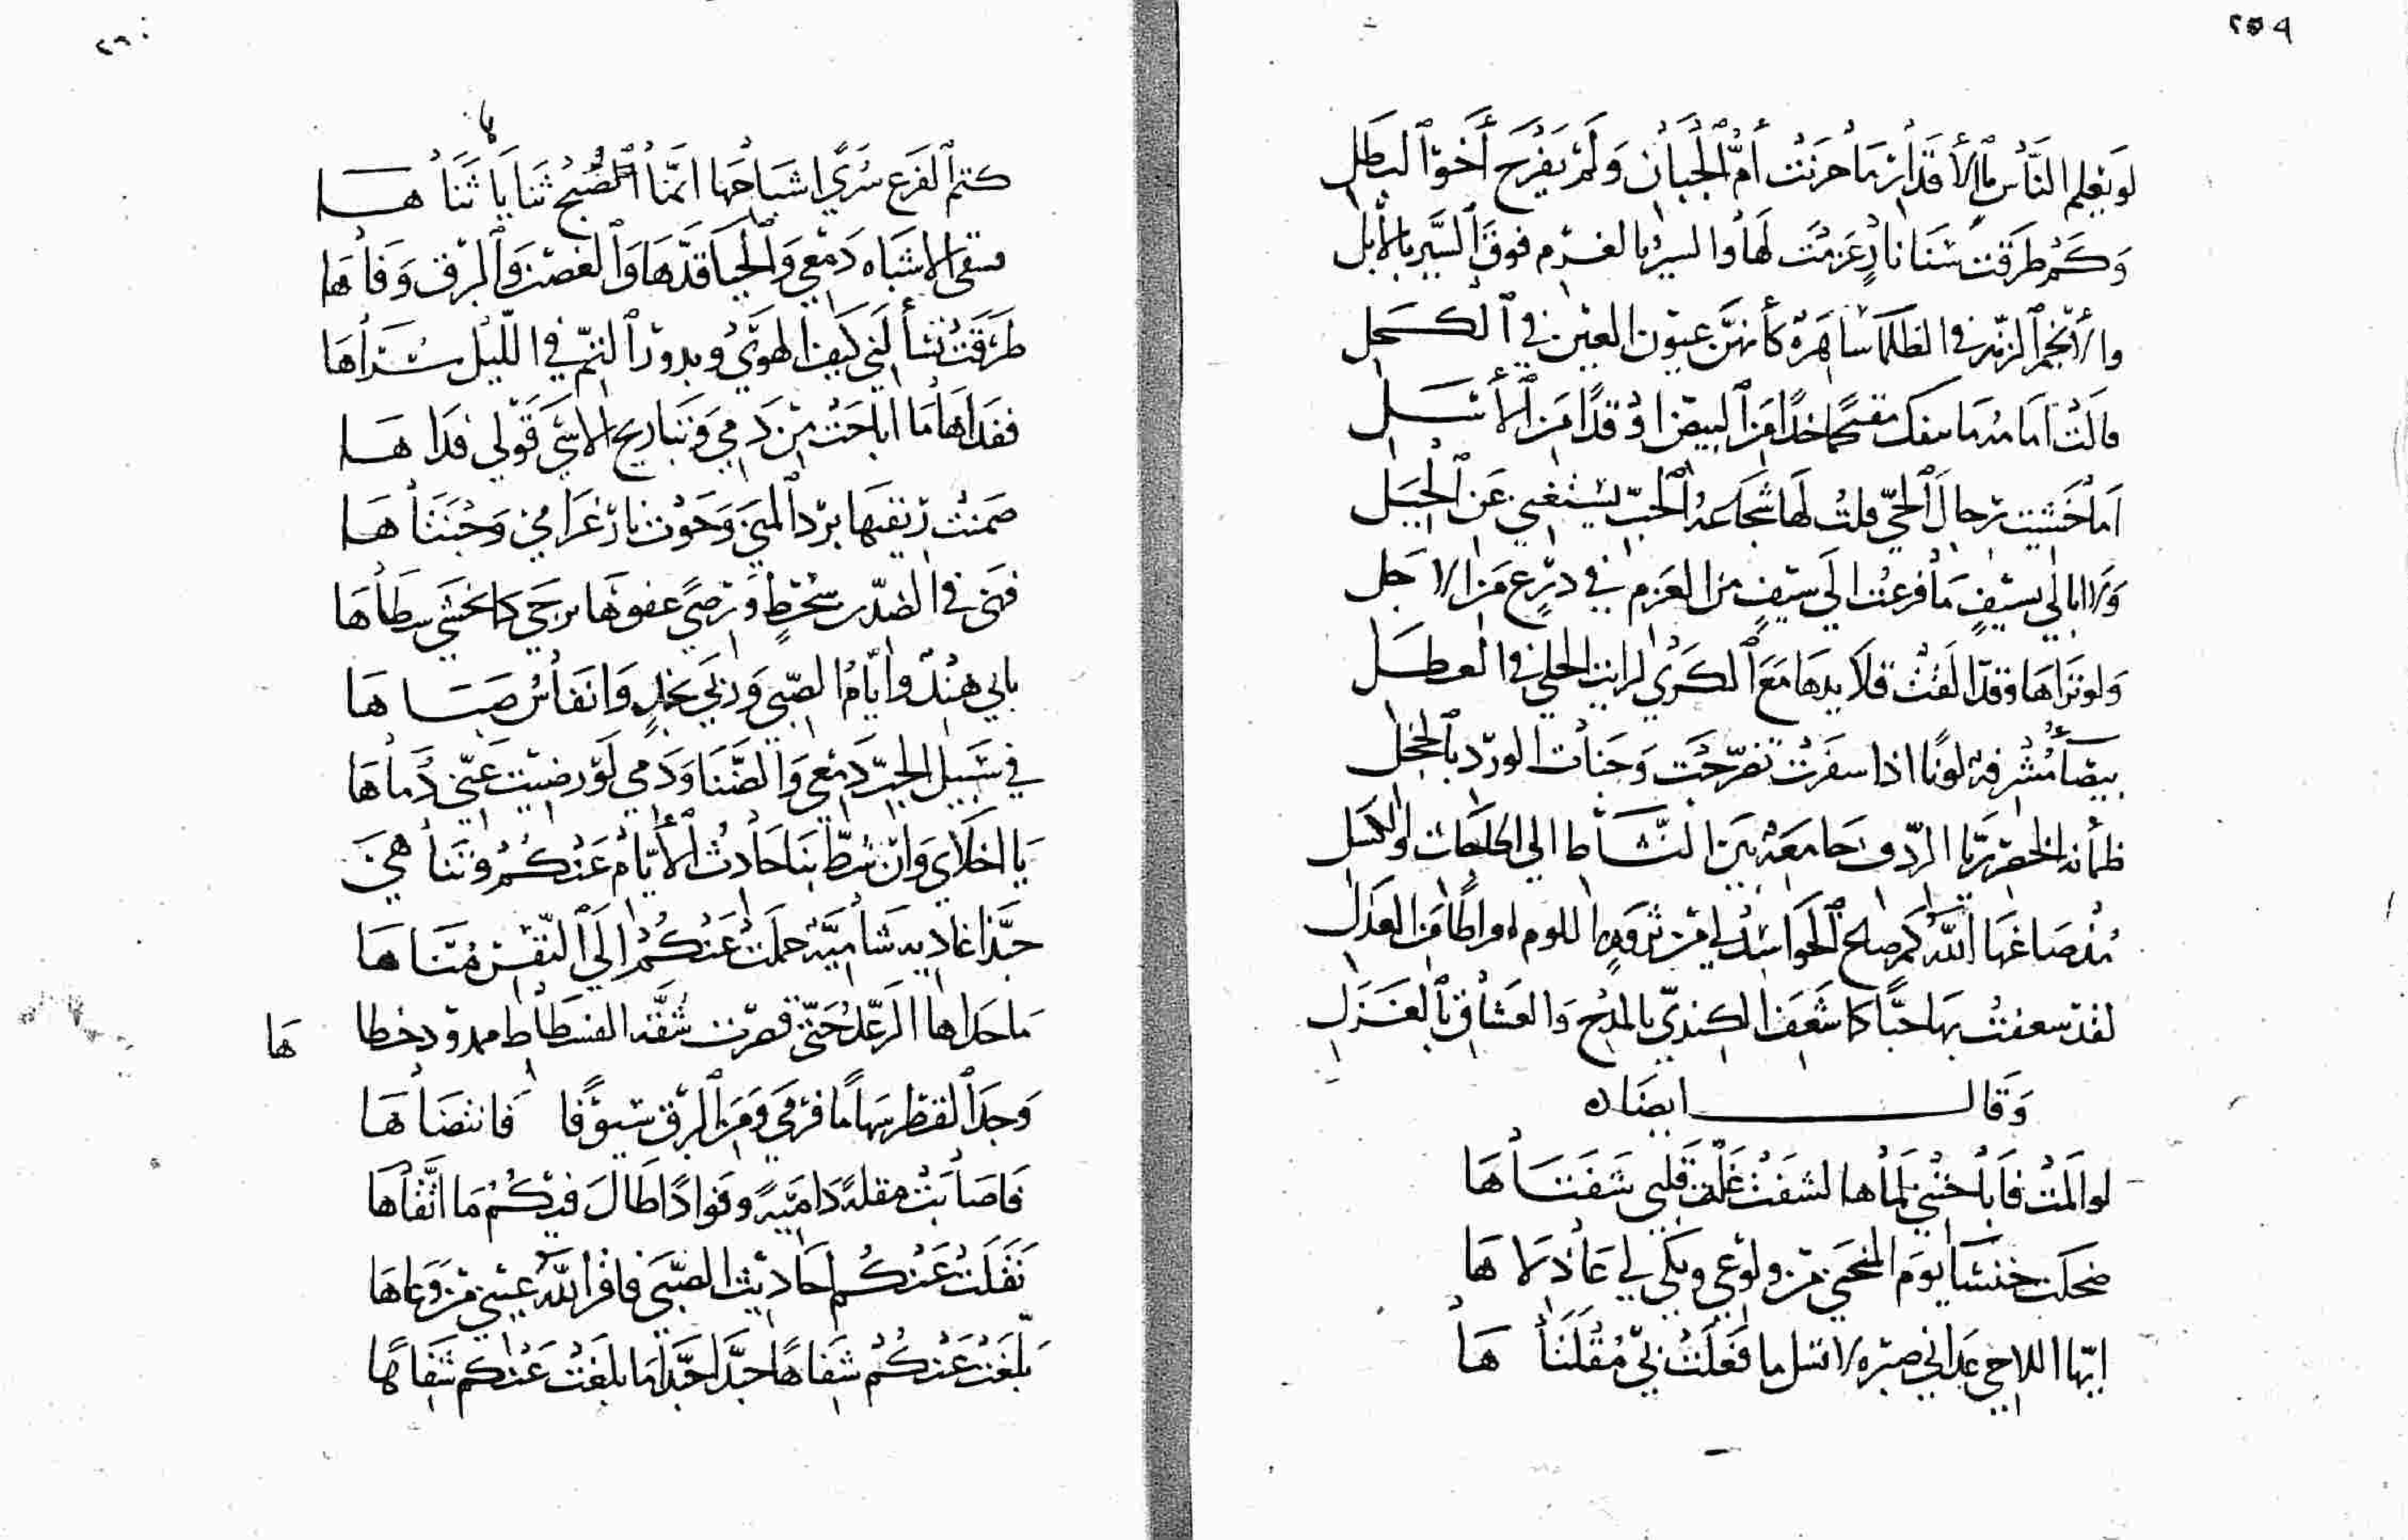 ٢٥٩
لَو يَعلم النَّاسُ مَا الأَقدَارُ مَا حَزِنَتْ أُمُّ الجَبَانِ وَلَمْ يَفْرَحْ أَخُو البَطَلِ
وَكَمْ طَرَقْتُ سَنَا نَارٍ عَزَمْتُ لَهَا والسيرُ بالعزم فوقَ السَّيرِ بالأبل
والأنجم الزهر في الظلما سَاهَرة كأنهنَّ عيون العين في الكحل
قالَتْ أمامة ما سفك مقتحمًا خدًا مِنَ البيض او قدًا مِنَ الأَسَل
اَمَا خَشيت رجال الحيّ قلتُ لَها شجاعة الحبّ يستغني عَنِ الحِيَل
وَلا ابالي بسَيْفٍ مَا فزعتُ الَى سَيْفٍ من العَزم في درْع مَن الاَجَل
وَلو تَرَاها وقد الفت قلايدها مَعَ الكَرَى لرايت الحلي في العطل
بيضآء مُشرفة لونًا اذا سفرَتْ تضرّجَت وَجنات الورد بالخجل
ظمأنة الخصر ريّا الردف جامعة بَين النَّشاط الى الحاجات والكسل
لقد سعفتُ بها حبًّا كما شَعَفَ الكنديّ بالمدح والعشاق بالغَزَل
وَقَال ايضًا ه
لو المَتْ فَاباحَتني لَمَاها لشفَتْ غلّة قلبي شَفتَاهَا
ضحكت خنسَا يومَ المنحَنى من ولوعي وبكى لي عَاذِلاهَا
ايّها اللاحي عداني صبره لا تسل ما فعَلتْ بي مُقْلَتَاهَا
٢٦٠
كتم الفَرع سُرى اشباحهَا انمَّا الصُّبحُ ثَنايَا ثَنَاهَا
سَقى الاشبَاه دَمْعي وَالحيا قدَّهَا وَالغصن والبرق وَفاهَا
طرقت تسألني كَيفَ الهوَى وبدورُ التمّ في اللّيل سُرَاهَا
ففدَاهَا مَا اباحَتْ مِن دَمي وَتباريح الاسَى قَوْلي فدَاهَا
ضمنتْ ريقتها بردَ المنَى وَحَوت نار غرَامي وَجْنَتَاهَا
فهَى في الصّدر سُخطٍ وَرضىً عفوهَا يرجَى كما تخشَى سطَاهَا
بابي هندٌ وايّامُ الصّبى وَرُبَى نجدٍ وَانفَاسُ صَبَاهَا
في سَبيل الحبّ دَمْعي وَالضَّنَا وَدَمي لَو رضيَتْ عَنّي دُمَاهَا
يَا اخلاي وَان شطّ بنَا حَادثُ الأيّام عَنْكُمْ وَتَنَاهى
حبّذا غاديه شَاميّة حَملتْ عَنْكُمُ الى النّفْس مُنَاهَا
مَا حَداها الرّعدُ حتّى قصرت شقة الفسطاط ممدود خطاها
وَجدَ القطر سِهامًا فرمَى وَمنَ البرق سيوفًا فَانتضَاهَا
فَاصَابَتْ مقلةً دَامِيَةً وفوادًا طَالَ فيكمْ مَا اتَّقَاهَا
نَقَلتْ عَنْكُم احَاديث الصّبَى فاقرَ اللهُ عيني من وَعاهَا
بَلّغتْ عَنكُم شفَاهًا حبّذا حَبّذا مَا بلغتْ عَنكم شفَاهَا